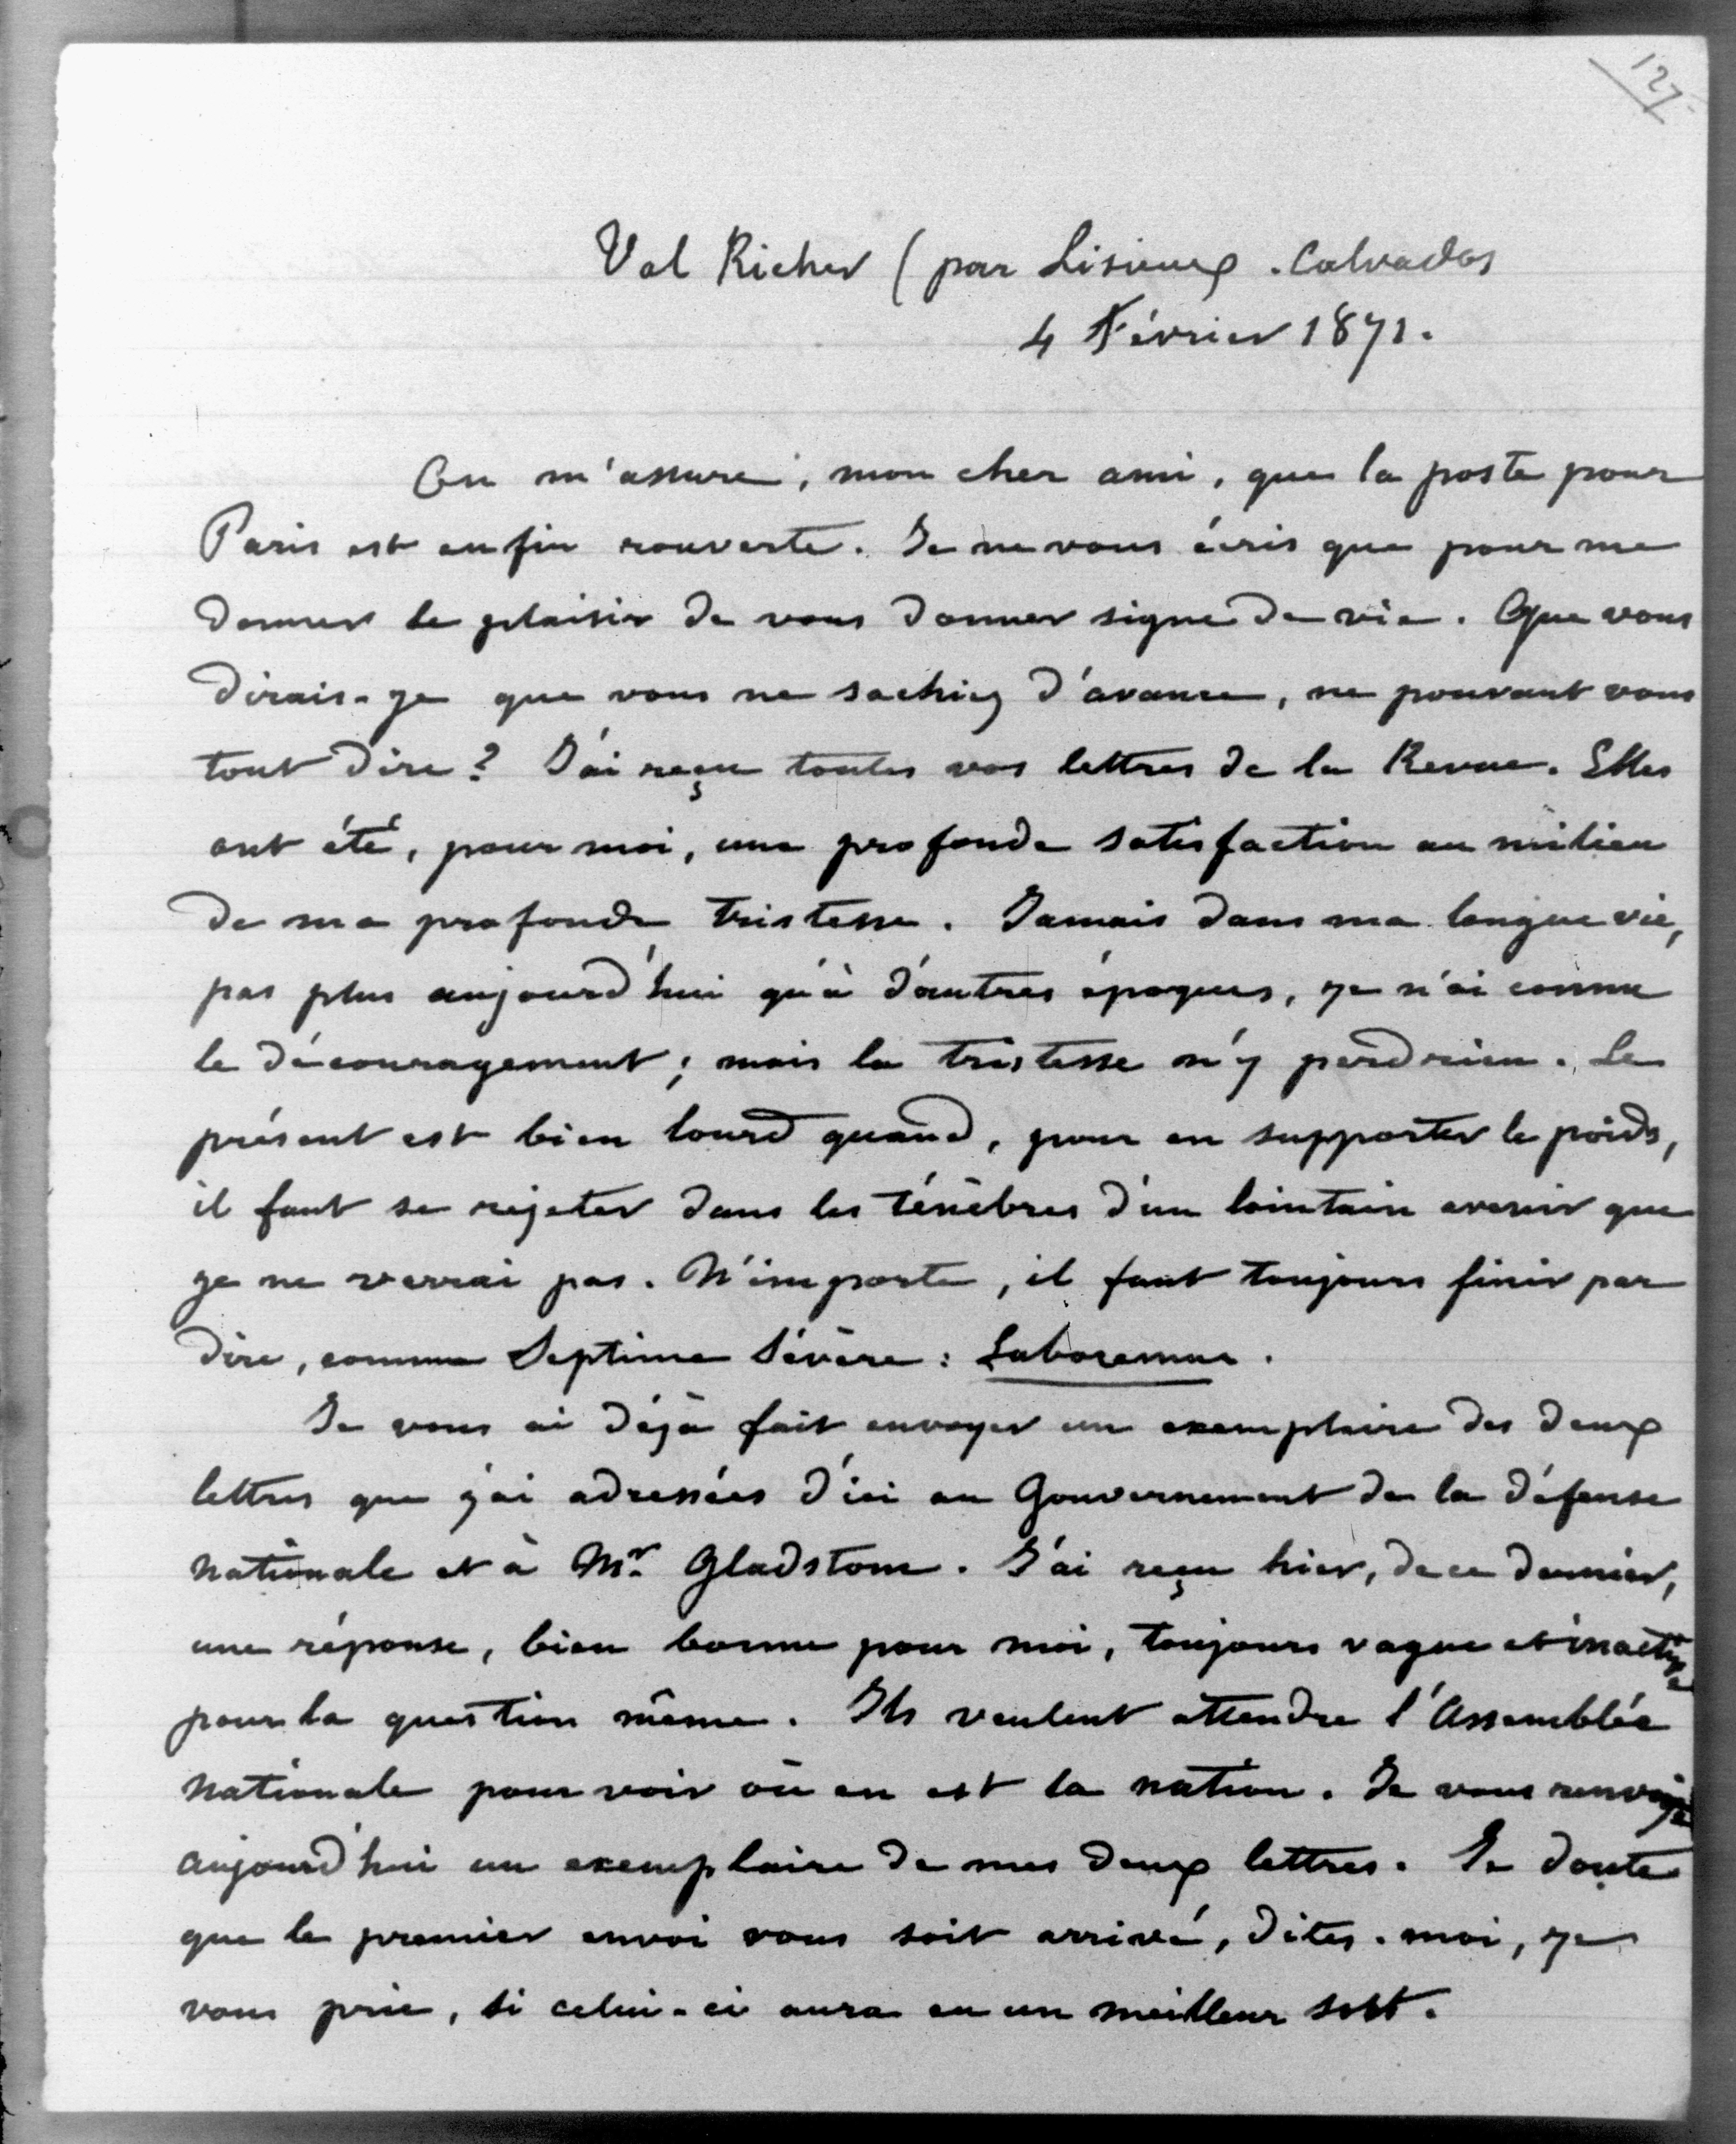 127
Val Richer (par Lisieux. Calvados
4 Février 1871.
On m'assure, mon cher ami, que la poste pour
Paris est enfin rouverte. Je ne vous écris que pour me
donner le plaisir de vous donner signe de vie. Que vous
dirais-je que vous ne sachiez d'avance, ne pouvant vous
tout dire? J'ai reçu toutes vos lettres de la Revue. Elles
ont été, pour moi, une profonde satisfaction au milieu
de ma profonde tristesse. Jamais dans ma longue vie,
pas plus aujourd'hui qu'à d'autres époques, je n'ai connu
le découragement; mais la tristesse n'y perd rien. Le
présent est bien lourd quand, pour en supporter le poids,
il faut se rejeter dans les ténèbres d'un lointain avenir que
je ne verrai pas. N'importe, il faut toujours finir par
dire, comme Septime Sévère: Laboremus.
Je vous ai déjà fait envoyer un exemplaire des deux
lettres que j'ai adressées d'ici au Gouvernement de la défense
nationale et à Mr. Gladstone. J'ai reçu hier, de ce dernier,
une réponse, bien bonne pour moi, toujours vague et inactive
pour la question même. Ils veulent attendre l'Assemblée
nationale pour voir où en est la nation. Je vous renvoye
aujourd'hui un exemplaire de mes deux lettres. Je doute
que le premier envoi vous soit arrivé, dites-moi, je
vous prie, si celui-ci aura eu un meilleur sort.